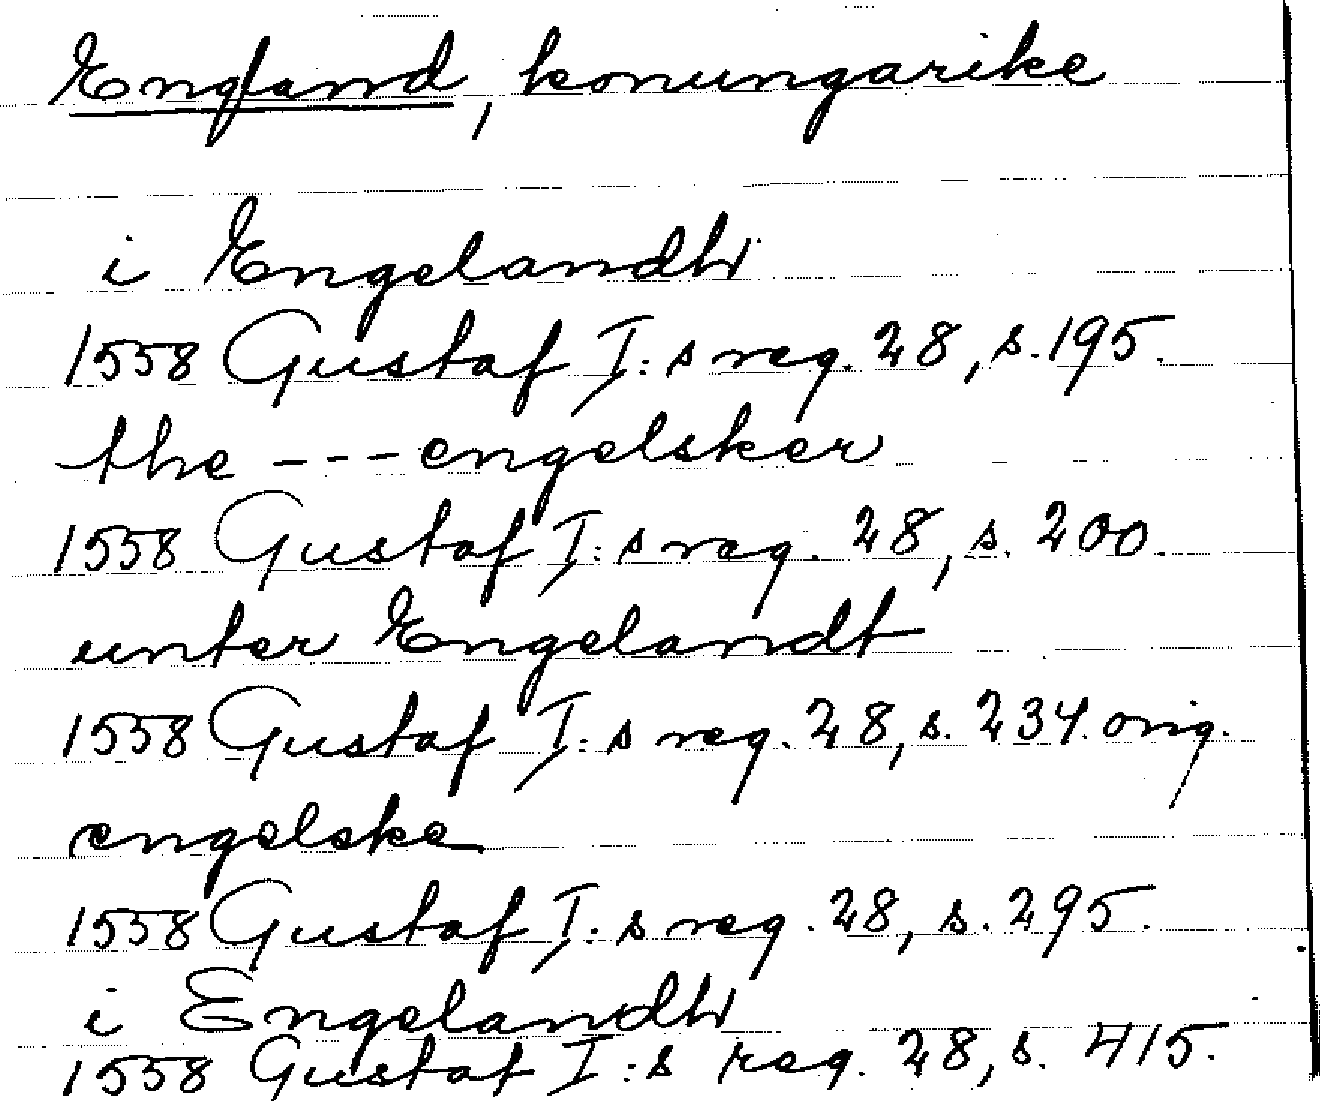 England, konungarike
i Engelandh
1558 Gustaf I:s reg. 28, s. 195.
the --- engelsker
1558 Gustaf I:s reg. 28, s. 200.
unter Engelandt
1558 Gustaf I:s reg. 28, s. 234. orig.
engelske
1558 Gustaf I:s reg. 28, s. 295.
i Engelandh
1558 Gustaf I:s reg. 28, s. 415.